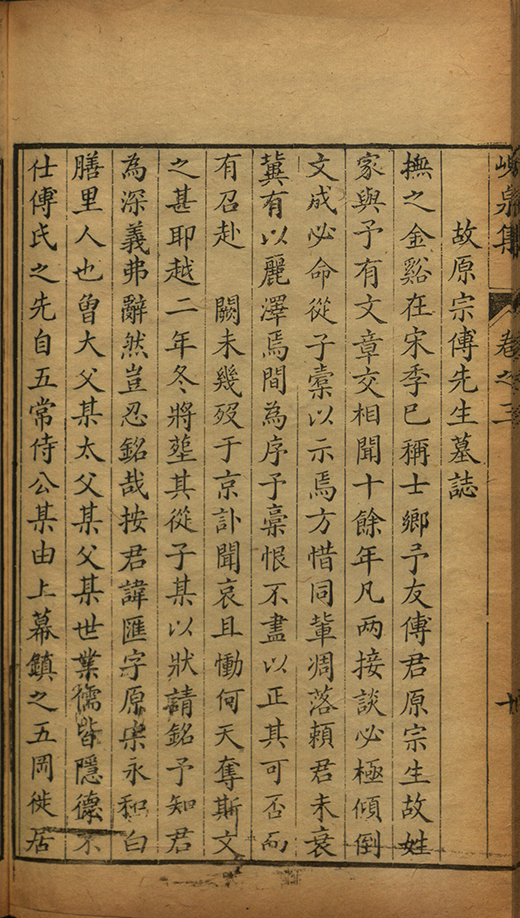 峴泉集
卷之三
故原宗傅先生墓誌
撫之金谿在宋季已稱士鄉予友傅君原宗生故姓
家與予有文章交相聞十餘年凡两接談必極傾倒
文成必命從子稾以示焉方惜同軰凋落頼君未衰
冀有以麗澤焉間為序予稾恨不盡以正其可否而
有召赴　闕未幾歿于京訃聞哀且慟何天奪斯文
之甚耶越二年冬將塟其從子某以狀請銘予知君
為深義弗辭然豈忍銘哉按君諱匯字原宗永和白
膳里人也曽大父某太父某父某世業儒皆隱德不
仕傅氏之先自五常侍公某由上幕鎮之五岡徙居